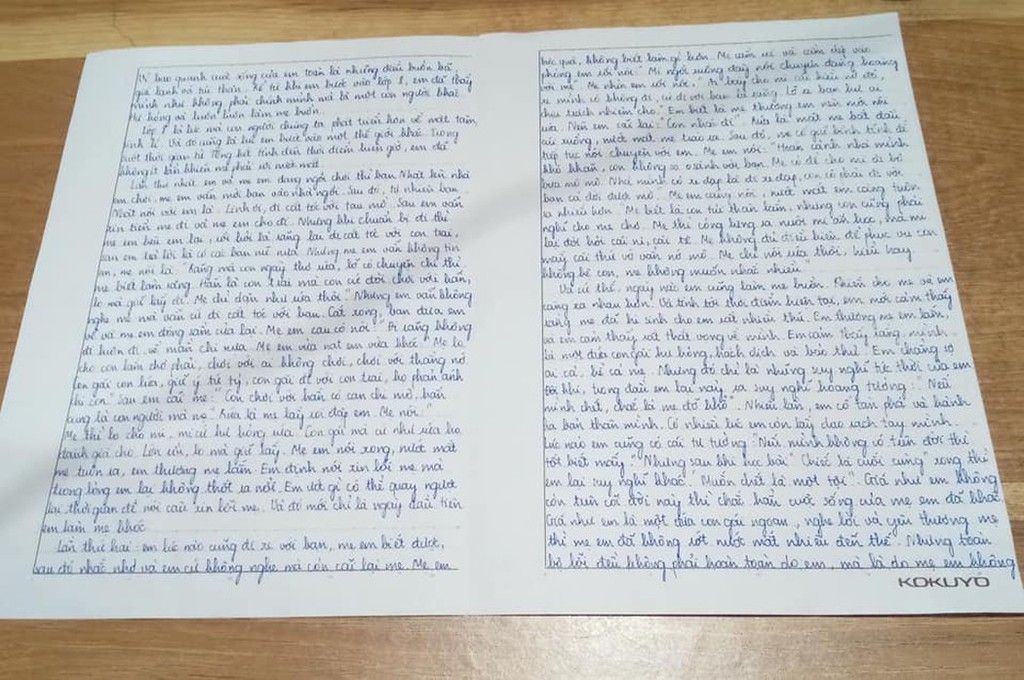 bao quanh cuộc sống của em toàn là những điều buồn bã,
giá lạnh và tủi thân. Kể từ khi em bước vào lớp 8, em đã thấy
mình như không phải chính mình mà là một con người khác
hư hỏng và luôn luôn làm mẹ buồn.
Lớp 8 là lúc mà con người chúng ta phát triển hơn về mặt tâm
sinh lí. Và đó cũng là lúc em bước vào một thế giới khác. Trong
suốt thời gian từ đó tính đến thời điểm bây giờ, em đã
không ít lần khiến mẹ phải rơi nước mắt.
Lần thứ nhất em và mẹ em đang ngồi chơi thì bạn Nhất lên nhà
em chơi, mẹ em vẫn mời bạn vào nhà ngồi. Sau đó, tự nhiên bạn
Nhất nói với em là: Linh ơi, đi cắt tóc với tau mồ. Sau em vẫn
xin tiền mẹ đi và mẹ em cho đi. Nhưng khi chuẩn bị đi thì
mẹ em kêu em lại, và hỏi là răng lại đi cắt tóc với con trai,
sau em trả lời là có cả bạn nữ nữa. Nhưng mẹ em vẫn không tin
em, mẹ nói là: "Răng mà con ngây thơ rứa, lỡ có chuyện chi thì
mẹ biết làm răng. Hắn là con trai mà con cứ đòi chơi với hắn,
lo mà giữ lấy đi. Mẹ chỉ dặn như rứa thôi." Nhưng em vẫn không
nghe mẹ mà vẫn cứ đi cắt tóc với bạn. Cắt xong, bạn đưa em
về và mẹ em đứng sẵn cửa lại. Mẹ em cau có nói: "Đi răng không
đi luôn đi, về mần chi nữa. Mẹ em vừa nạt em vừa khóc. "Mẹ lo
cho con lắm chớ phải, chơi với ai không chơi, chơi với thằng nớ.
Con gái con lứa, giữ ý tứ tý, con gái đi với con trai, họ phản ánh
chi con." Sau em cãi mẹ: "Con chơi với bạn có can chi mô, bạn
cũng là con người mà mẹ." Rứa là mẹ lấy roi đập em. Mẹ nói:"
Mẹ chỉ lo cho mi, mi cứ hư hỏng rứa. Con gái mà cứ như rứa họ
đánh giá cho. Lớn rồi, lo mà giữ lấy. Mẹ em nói xong, nước mắt
mẹ tuôn ra, em thương mẹ lắm. Em định nói xin lỗi mẹ mà
trong lòng em lại không thốt ra nổi. Em ước gì có thể quay ngược
lại thời gian để nói câu xin lỗi mẹ. Và đó mới chỉ là ngày đầu tiên
em làm mẹ khóc.
Lần thứ hai: em lúc nào cũng đi xe với bạn, mẹ em biết được,
sau đó nhắc nhở và em cứ không nghe mà còn cãi lại mẹ. Mẹ em
bức quá, không biết làm gì hơn. Mẹ em và cầm dép vào
phòng em rồi nói: "Mi ngồi xuống đây nói chuyện đàng hoàng
với mẹ". Mẹ nhìn em rồi nói, "Ai bày cho mi cái kiểu nớ đó,
xe mình có không đi, cứ đi với bạn là răng. Lỡ xe bạn hư ai
chịu trách nhiệm cho." Em biết là mẹ thương em nên mới nói
rứa. Nên em cãi lại: "Con nhác đi". Rứa là mắt mẹ bắt đầu
cúi xuống, nước mắt mẹ trào ra. Sau đó, mẹ cố giữ bình tĩnh để
tiếp tục nói chuyện với em. Mẹ em nói: "Hoàn cảnh nhà mình
khó khăn, con không so sánh với bạn. Mẹ có để cho mi đi bộ
bữa mô mồ. Nhà mình có xe đạp là đi xe đạp, con có phải đi với
bạn cả đời được mô". Mẹ em càng nói, nước mắt em càng tuôn
ra nhiều hơn. Mẹ biết là con tủi thân lắm, nhưng con cũng phải
nghĩ cho mẹ chớ. Mẹ thì còng lưng ra nuôi mi ăn học, mà mi
lại đòi hỏi cái ni, cái tê. Mẹ không đủ điều kiện để phục vụ con
mấy cái thứ vô vẩn nớ mô. Mẹ chỉ nói rứa thôi, hiểu hay
không kệ con, mẹ không muốn nhắc nhiều."
Và cứ thế, ngày nào em cũng làm mẹ buồn. Khiến cho mẹ và em
càng xa nhau hơn. Và tính tới thời điểm hiện tại, em mới cảm thấy
rằng mẹ đã hi sinh cho em rất nhiều thứ. Em thương mẹ em lắm,
và em cảm thấy rất thất vọng về mình. Em cảm thấy rằng mình
là một đứa con gái hư hỏng, hách dịch và bốc thư. Em chẳng sợ
ai cả, kể cả mẹ. Nhưng đó chỉ là những suy nghĩ tức thời của em
đôi khi, trong đầu em lại nảy ra suy nghĩ hoang tưởng: "Nếu
mình chết, chắc là mẹ đỡ khổ". Nhiều lần, em cố tàn phá và hành
hạ bản thân mình. Có nhiều lúc em còn lấy dao rạch tay mình.
Lúc nào em cũng có cái tư tưởng: "Nếu mình không có trên đời thì
tốt biết mấy." Nhưng sau khi học bài "Chiếc lá cuối cùng" xong thì
em lại suy nghĩ khác. "Muốn chết là một tội". Giá như em không
còn trên cõi đời này thì chắc hẳn cuộc sống của mẹ em đã khác.
Giá như em là một đứa con gái ngoan, nghe lời và yêu thương mẹ
thì mẹ em đã không rớt nước mắt nhiều đến thế. Nhưng toàn
bộ lỗi đều không phải hoàn toàn do em, mà là do mẹ em không
KOKUYO